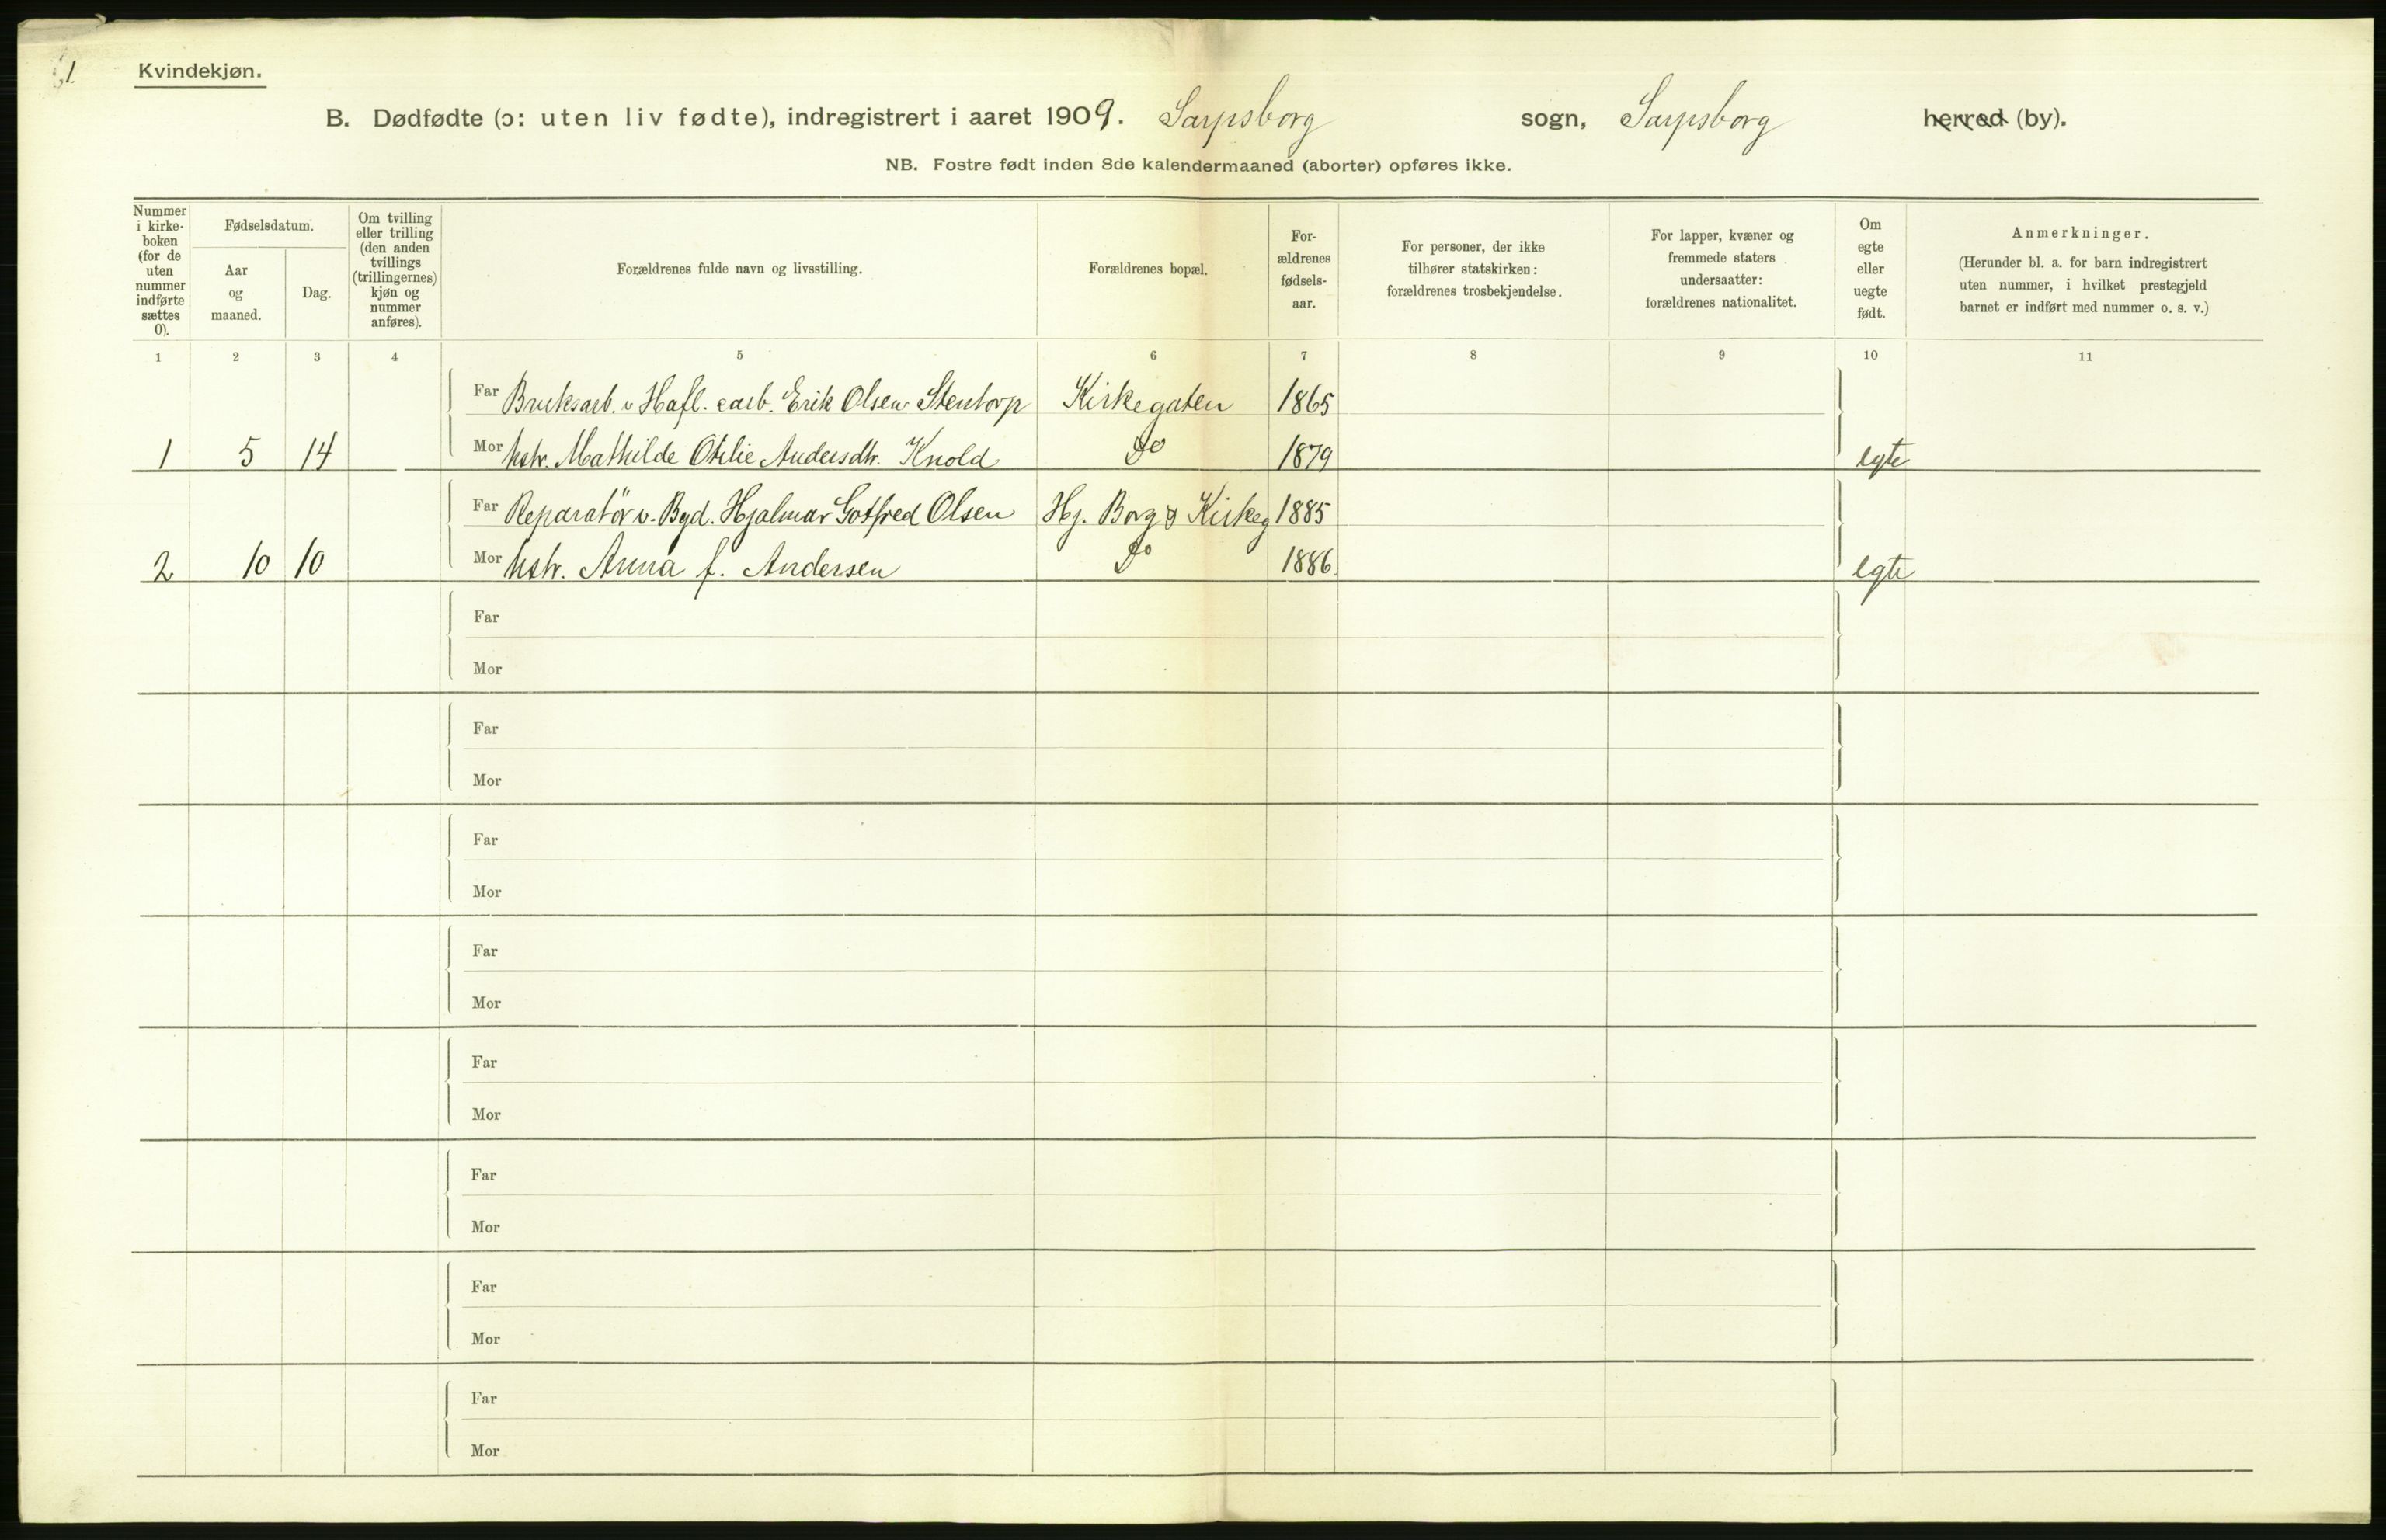 1.
Kvindekjøn.
B. Dødfødte (ɔ: uten liv fødte), indregistrert i aaret 1909. Sarpsborg sogn, Sarpsborg herred (by).
NB. Fostre født inden 8de kalendermaaned (aborter) opføres ikke.
Nummer i kirke-boken (for de uten nummer indførte sættes 0).
Fødselsdatum.
Aar og maaned.
Dag.
Om tvilling eller trilling (den anden tvillings (trillingernes) kjøn og nummer anføres).
Forældrenes fulde navn og livsstilling.
Forældrenes bopæl.
For-ældrenes fødsels-aar.
For personer, der ikke tilhører statskirken: forældrenes trosbekjendelse.
For lapper, kvæner og fremmede staters undersaatter: forældrenes nationalitet.
Om egte eller uegte født.
Anmerkninger.
(Herunder bl. a. for barn indregistrert uten nummer, i hvilket prestegjeld barnet er indført med nummer o. s. v.)
1 2 3 4 5 6 7 8 9 10 11
Far Bruksarb. v Hafl. Erik Olsen Stentorp Kirkegaten 1865
1 5 14 Mor hstr. Mathilde Otilie Andersdtr. Knold Do 1879 egte
Far Reparatör v. Byd. Hjalmar Gotfred Olsen Hj. Borg & Kirkeg 1885
2 10 10 Mor hstr. Anna f. Andersen Do 1886. egte
Far
Mor
Far
Mor
Far
Mor
Far
Mor
Far
Mor
Far
Mor
Far
Mor
Far
Mor